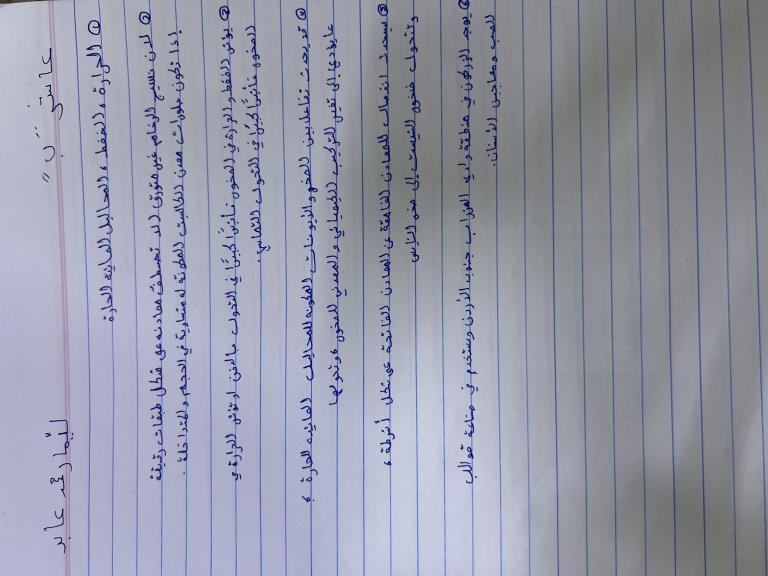 عاشر "ب"
① الحرارة، والضغط، والمحاليل المائية الحارة
② لأن نسيج الرخام غير متورق (لا تصطف معادنه على شكل طبقات رقيقة
إذا تكون بلورات معدن الكالسيت المكونة له متساوية في الحجم والمتداخلة.
③ يؤثر الضغط والحرارة في الصخور تأثيرًا كبيرًا في التحول بالدفن وتؤثر الحرارة في
الصخور تأثيرًا كبيرًا في التحول التماسي.
④ قد يحدث تفاعل بين الصخر والأيونات المكونة للمحاليل المائية الحارة،
مايؤدي إلى تغير التركيب الكيميائي والمعدني للصخور، وتحولها
⑤ سيحدث انفصال للمعادن الغامقة عن المعادن الفاتحة على شكل أشرطة،
وتتحول صخور الشيست إلى صخر النايس
⑥ يوجد الزركون في منطقة وادي جنوب الأردن ويستخدم في صناعة قوالب
الصب ومعاجين الأسنان.